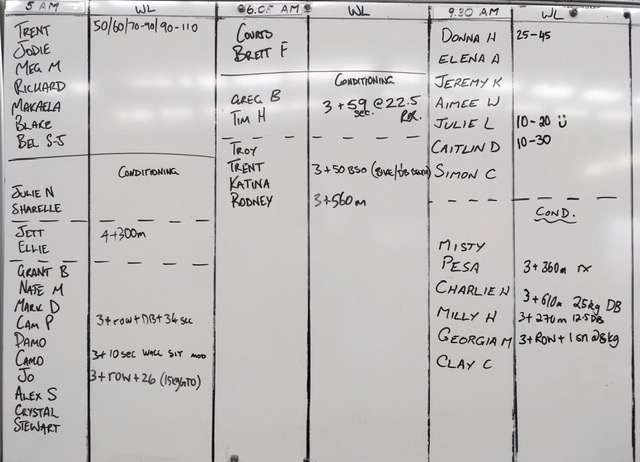 5 AM WL
TRENT 50/60/70-90/90-110
JODIE
MEG M
RICHARD
MAKAELA
BLAKE
BEL S-J
CONDITIONING
JULIE N
SHARELLE
JETT 4+300m
ELLIE
GRANT B
NATE M
MARK D
CAM P 3+row+DB+34 sec
DAMO
CAMO 3+10sec WALL SIT MOD
JO 3+row+26 (15kg GTO)
ALEX S
CRYSTAL
STEWART
6.05 AM WL
COURTS
BRETT F
CONDITIONING
GREG B 3+59 sec. @ 22.5
TIM H RX.
TROY
TRENT 3+50 BSO
KATINA
RODNEY 3+560m
9.30 AM WL
DONNA H 25-45
ELENA A
JEREMY K
AIMEE W
JULIE L 10-20
CAITLIN D 10-30
SIMON C
COND.
MISTY
PESA 3+360m rx
CHARLIE H 3+610m 25kg DB
MILLY H 3+270m 12.5DB
GEORGIA M 3+ROW+1 SN @8kg
CLAY C